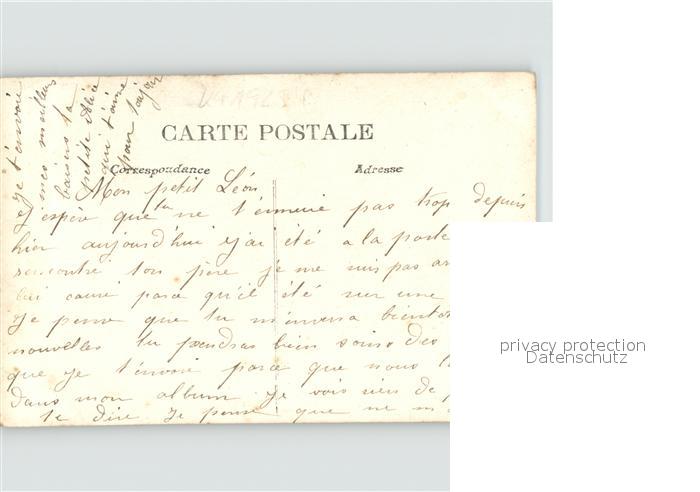 CARTE POSTALE
Correspondance
Adresse
Mon petit Léon
J'espère que tu ne t'ennuie pas trop depuis
hier aujourd'hui j'ai été a la poste
rencontré ton père je me suis pas
lui causé parce qu'il été sur une
Je pense que tu m'enverra bientot
nouvelles tu prendras bien soins des
que je t'envoie parce que nous
dans mon album Je vois rien de
te dire Je pense que ne
Je t'envoie
mes meilleurs
baisers ta
petite
qui t'aime
pour toujour
privacy protection
Datenschutz